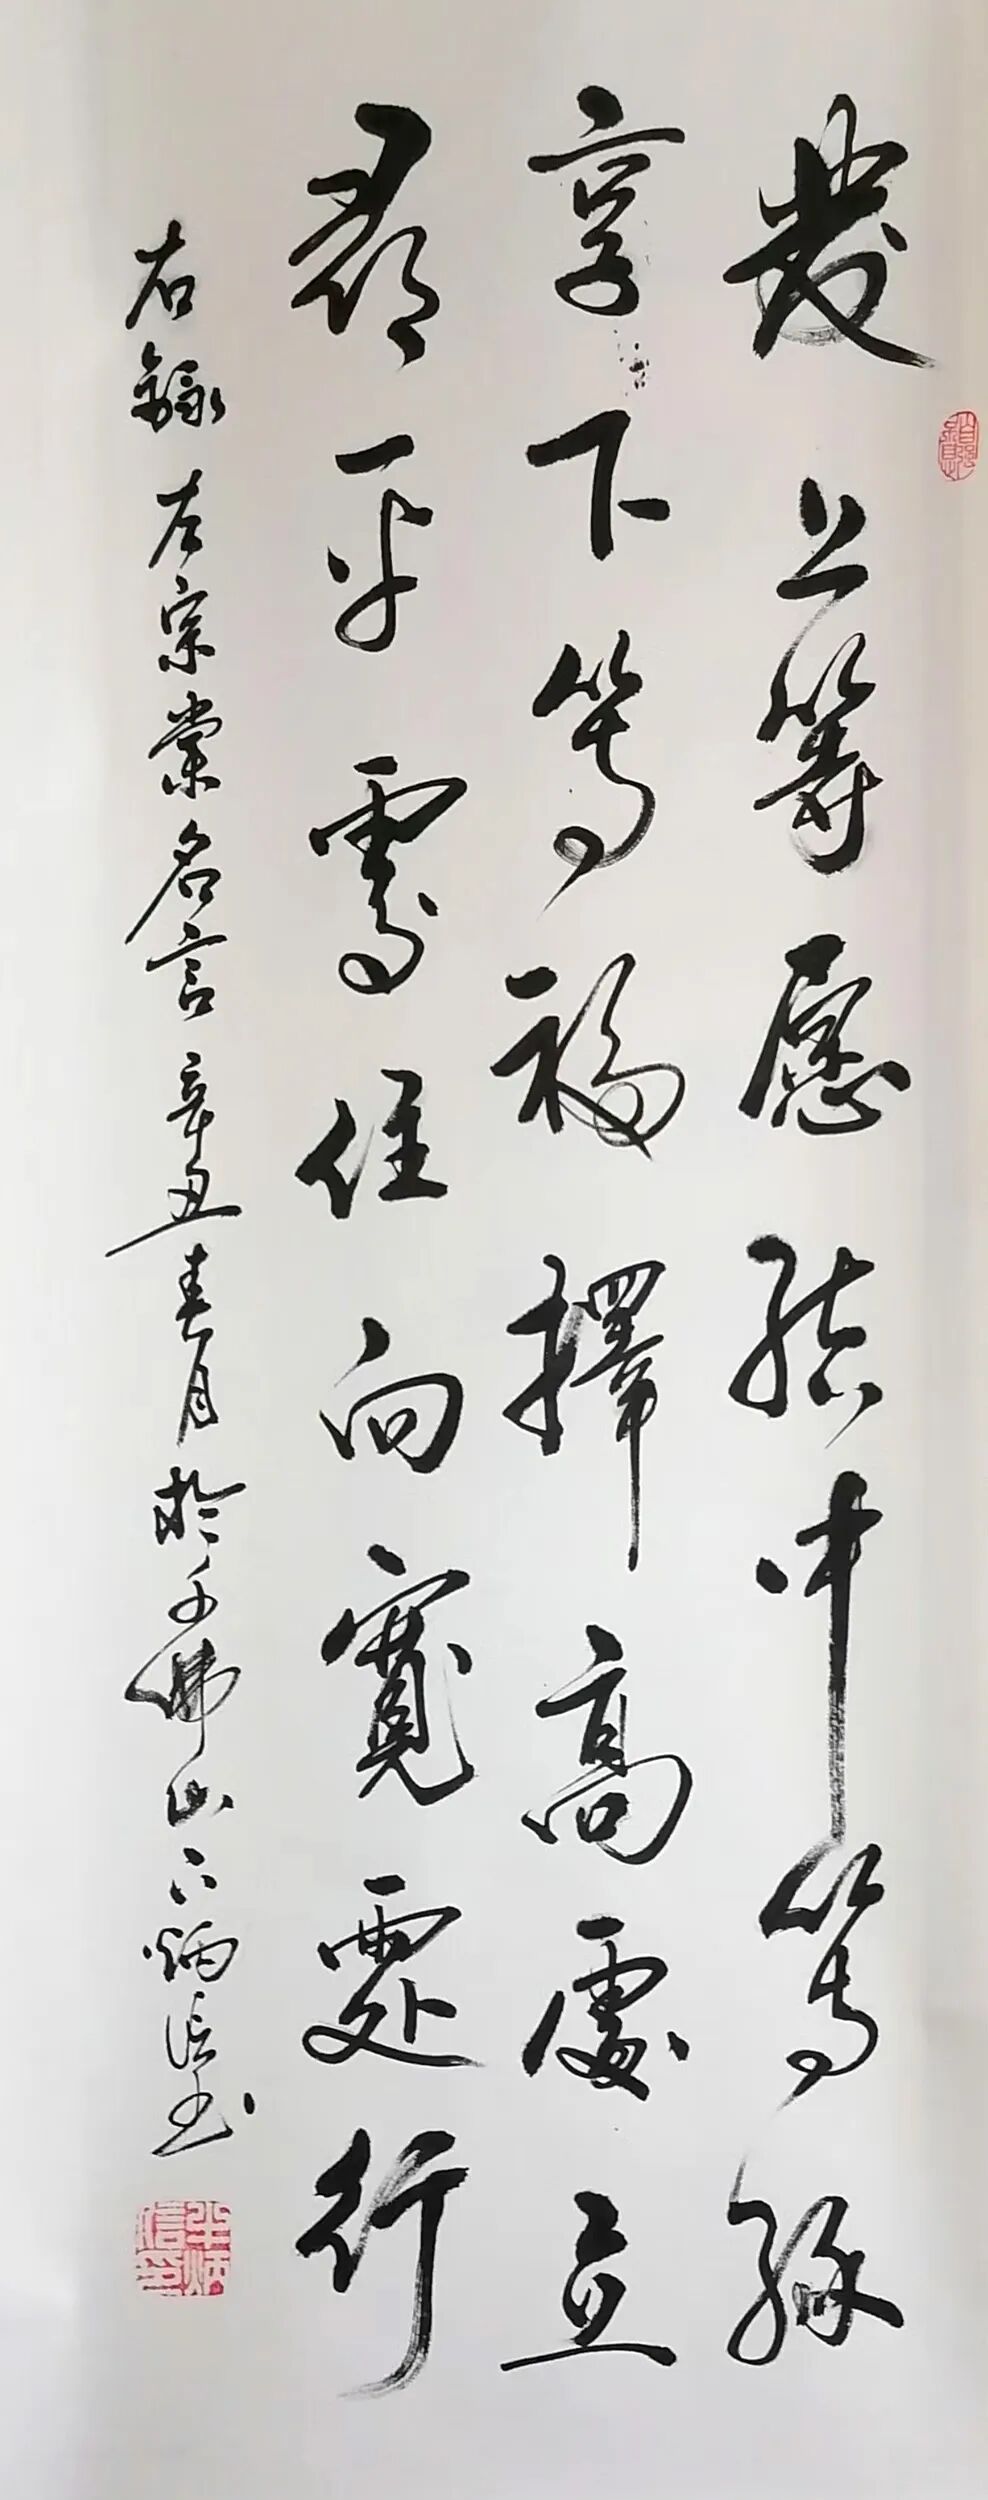 發上等愿結中等緣
享下等福擇高處立
尋平處住向寬處行
右錄左宗棠名言辛丑春月於千佛山下炳信書
自強不息